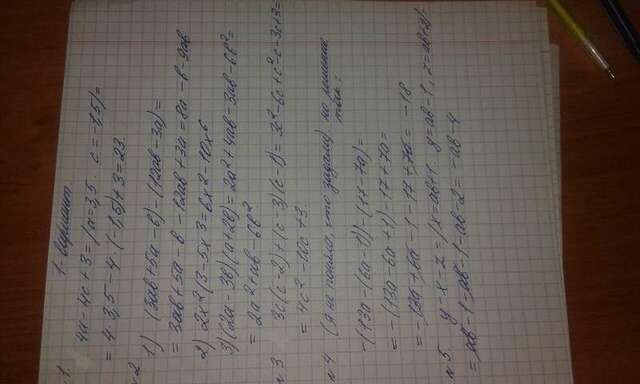 1-вариант.
1. 4a-4c+3=(a=3,5 · c=-1,5)=
=4·3,5-4·(-1,5)+3=23.
№2 1) (3ab+5a-b)-(12ab-3a)=
=3ab+5a-b-12ab+3a=8a-b-9ab
2) 2x²(3-5x³=6x²-10x⁵
3)(2a-3b)(a+2b)=2a²+4ab-3ab-6b²=
=2a²+ab-6b²
№3 3c(c-2)+(c-3)(c-1)=3c²-6c+c²-c-3c+3=
=4c²-10c+3.
№4 (я не поняла, что задали) но решение
-(13a-(6a-1))-(17-7a)=
=-(13a-6a+1)-17+7a=
=-13a+6a-1-17+7a=-18
№5 y-x-z=(x=ab+1 y=ab-1, z=ab+2)=
=ab-1-ab-1-ab-2=-ab-4